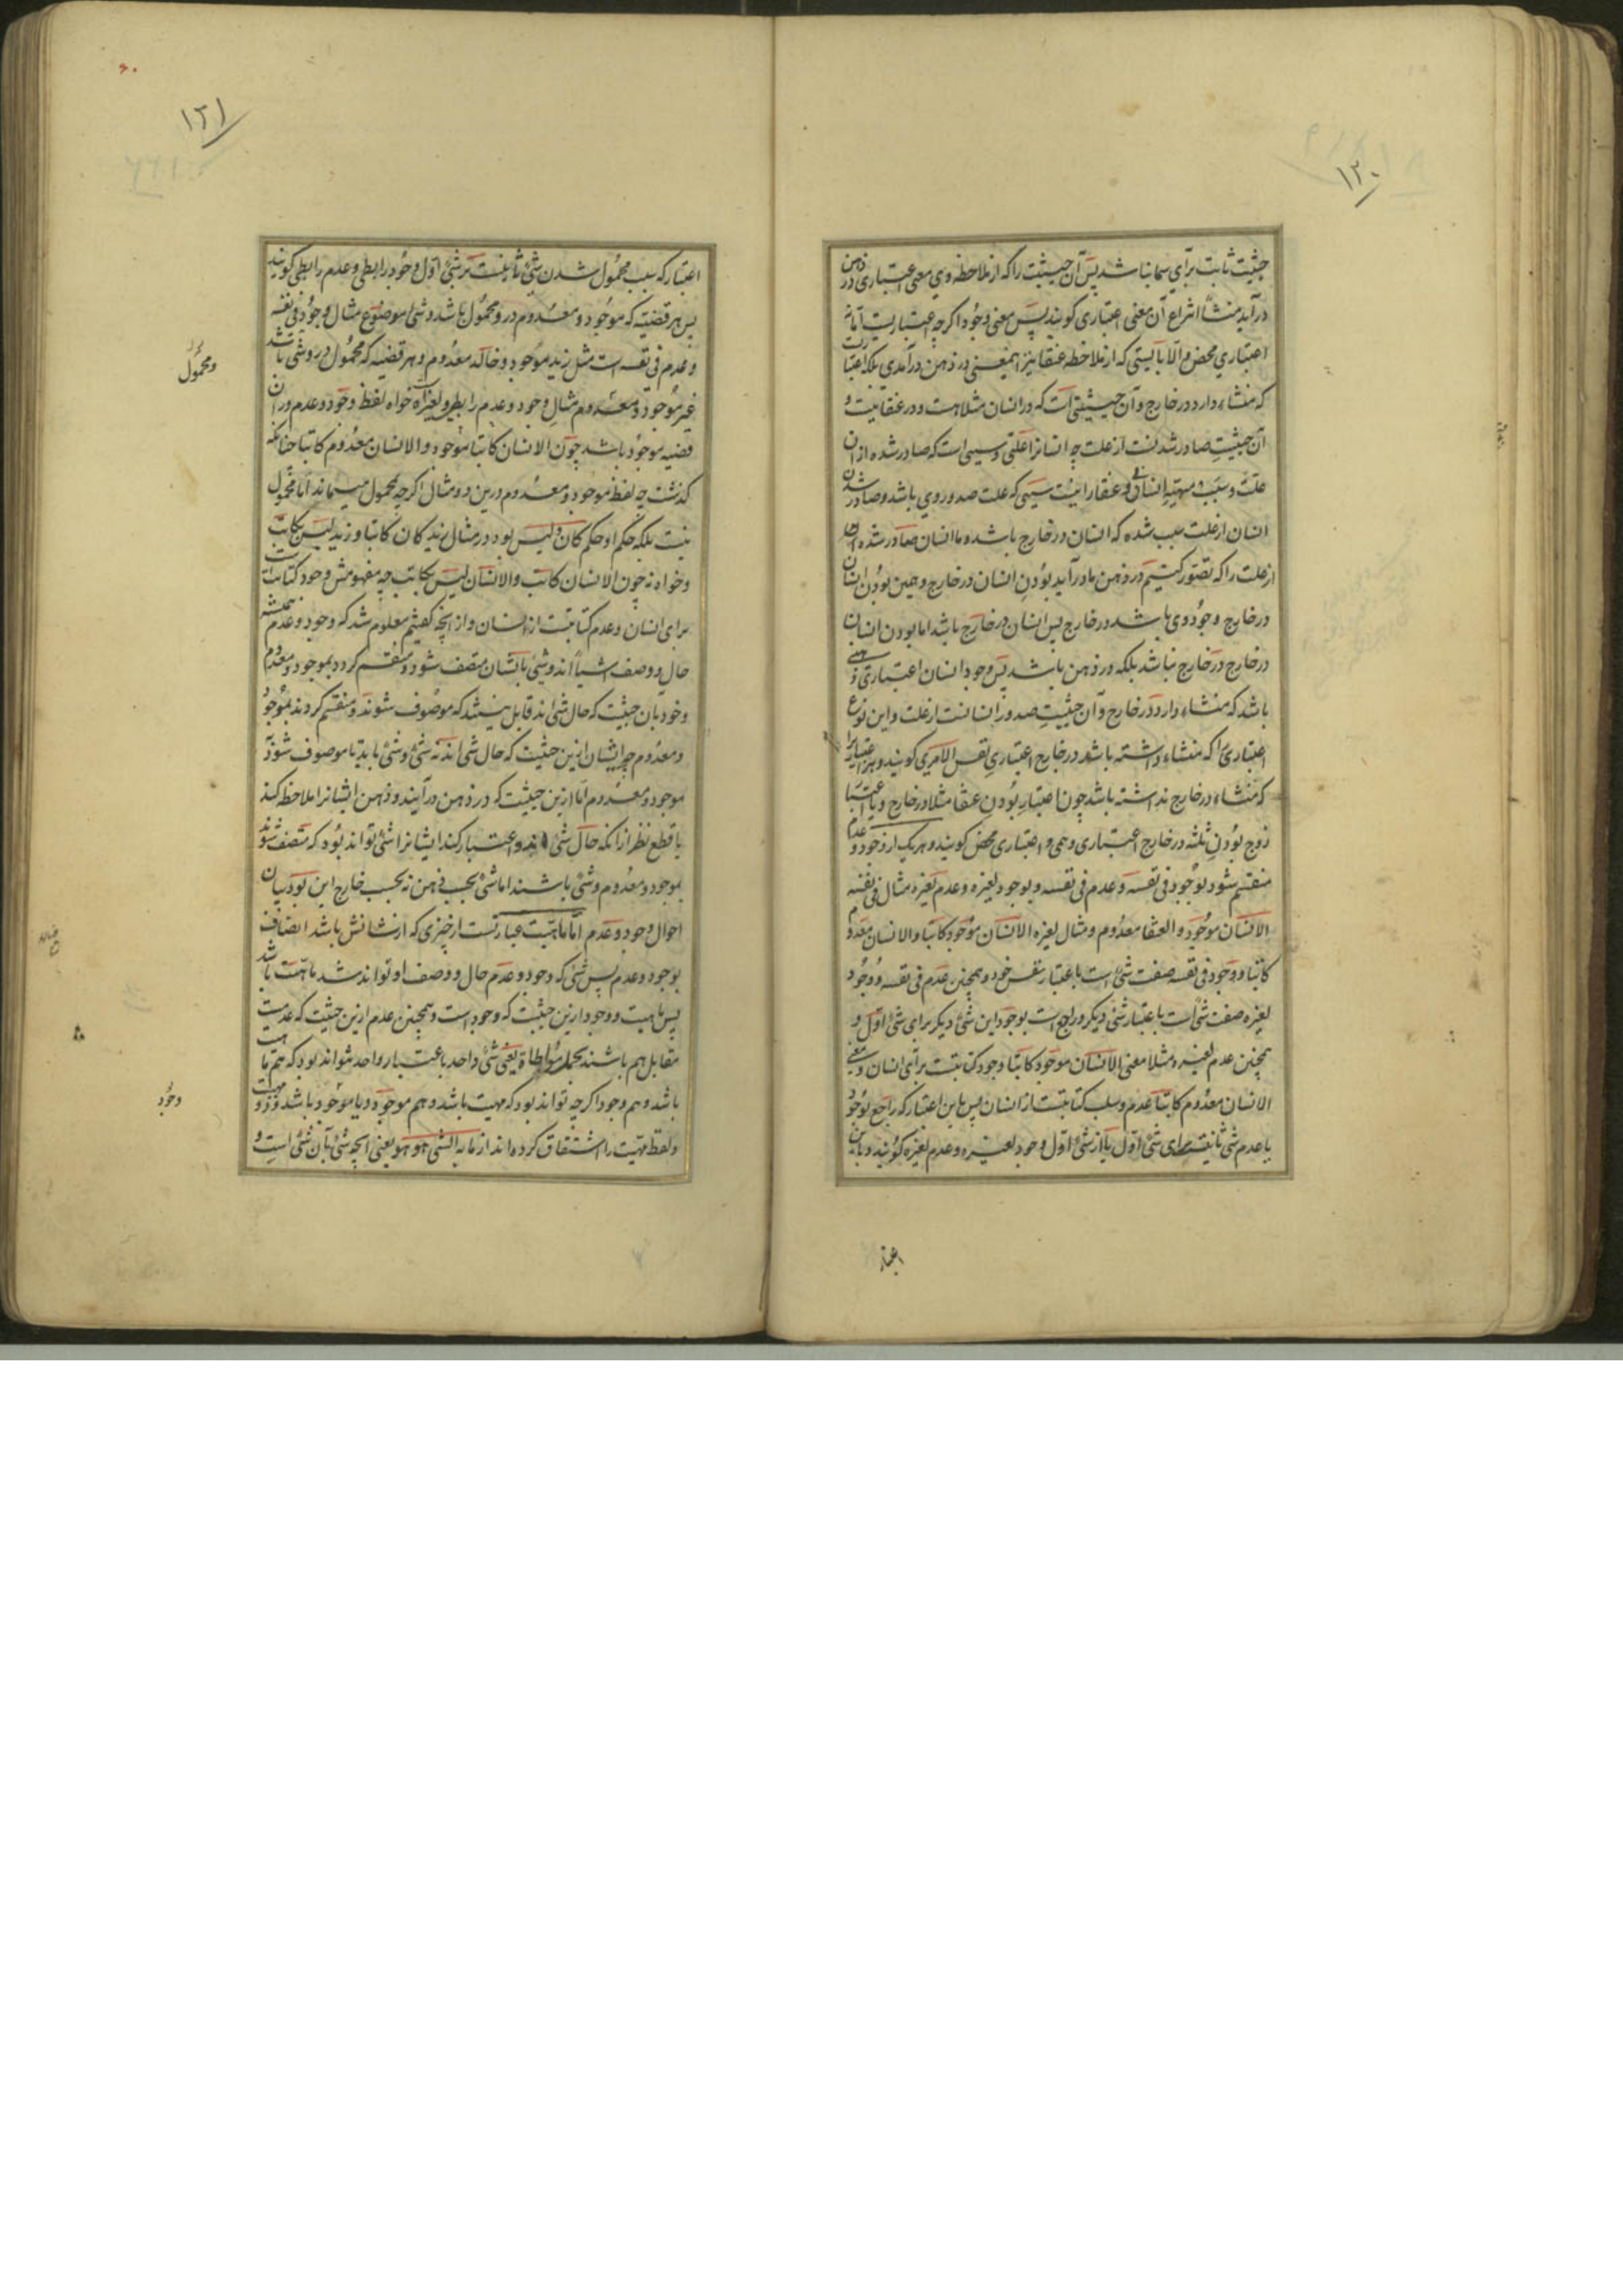 ۱۲۰
حیثیت ثابت برای سیما نباشد پس آن حیثیت را که از ملاحظه وی معنی اعتباری در ذهن
در آید منشأ انتزاع آن معنی اعتباری کویند پس معنی وجود اکرچه اعتباریست اما نه
اعتباری محض والا بایستی که از ملاحظه عنقا نیز این معنی در ذهن در آمدی بلکه اعتباریست
که منشاء دارد در خارج و آن حیثیتی است که در انسان مثلا هست و در عنقا نیست و
آن حیثیت صادر شدنست از علت چه انسانرا علتی و سببی است که صادر شده از ان
علت و سبب مهیّة انسانی و عنقا را نیست سببی که علت صدور وی باشد و صادر شدن
انسان از علت سبب شده که انسان در خارج باشد و ما انسان صادر شده
از علت را که تصور کنیم در ذهن ما در آید بودن انسان در خارج و همین بودن انسان
در خارج وجود وی باشد در خارج پس انسان در خارج باشد اما بودن انسان
در خارج در خارج نباشد بلکه در ذهن باشد پس وجود انسان اعتباری ذهنی
باشد که منشاء دارد در خارج و آن حیثیت صدور انسانست از علت و این نوع
اعتباری را که منشاء داشته باشد در خارج اعتباری نفس الامری کویند و هر اعتباری را
که منشاء در خارج نداشته باشد چون اعتبار بودن عنقا مثلا در خارج و یا اعتبار
زوج بودن ثلثه در خارج اعتباری وهمی و اعتباری محض کویند و هر یک از وجود و عدم
منقسم شود بوجود فی نفسه و عدم فی نفسه و بوجود لغیره و عدم لغیره مثال فی نفسه
الانسان موجود و العنقا معدوم و مثال لغیره الانسان موجود کاتبا والانسان معدوم
کاتبا و وجود فی نفسه صفت شئ است باعتبار نفس خود و همچنین عدم فی نفسه و وجود
لغیره صفت شئ است باعتبار شئ دیکر و راجع است بوجود این شئ دیکر برای شئ اول و
همچنین عدم لغیره مثلا معنی الانسان موجود کاتبا وجود کتابتست برای انسان و معنی
الانسان معدوم کاتبا عدم و سلب کتابتست از انسان پس باین اعتبار که راجع بوجود
یا عدم شئ ثانیست برای شئ اول یا از شئ اول وجود لغیره و عدم لغیره کویند و باین
اعتبار
۱۲۱
اعتبار که سبب محمول شدن شئ ثانیست بر شئ اول وجود رابطی و عدم رابطی کویند
پس هر قضیه که موجود و معدوم در و محمول باشد و شئ موضوع مثال وجود فی نفسه
و عدم فی نفسه است مثل زید موجود و خالد معدوم و هر قضیه که محمول در و شئ باشد
غیر موجود و معدوم مثال وجود و عدم رابطی و لغیره است خواه لفظ وجود و عدم در ان
قضیه موجود باشد چون الانسان کاتبا موجود و الانسان معدوم کاتبا چنانکه
کذشت چه لفظ موجود و معدوم درین دو مثال اکرچه بمحمول میماند اما محمول
نیست بلکه حکم او حکم کان و لیس بود در مثال زید کان کاتبا و زید لیس بکاتب
و خواه نه چون الانسان کاتب و الانسان لیس بکاتب چه مفهومش وجود کتابت است
برای انسان و عدم کتابتست از انسان و از آنچه کفتیم معلوم شد که وجود و عدم همیشه
حال و وصف اشیا اند و شئ بایشان متصف شود و منقسم کردد بموجود و معدوم
و خود بان حیثیت که حال شئ اند قابل نیستند که موصوف شوند و منقسم کردند بموجود
و معدوم چه ایشان ازین حیثیت که حال شئ اند نه شئ و شئ باید تا موصوف شود
موجود و معدوم اما ازین حیثیت که در ذهن در آیند و ذهن ایشانرا ملاحظه کند
با قطع نظر از انکه حال شئ اند و اعتبار کند ایشانرا شئ تواند بود که متصف شوند
بموجود و معدوم و شئ باشند اما شئ بحسب ذهن نه بحسب خارج این بود بیان
احوال وجود و عدم اما ماهیّت عبارتست از چیزی که از شانش باشد اتصاف
بوجود و عدم پس شئ که وجود و عدم حال و وصف او تواند شد ماهیّت باشد
پس ماهیت و وجود ازین حیثیت که وجود است و همچنین عدم ازین حیثیت که عدمست
مقابل هم باشند بحمل مواطاة یعنی شئ واحد باعتبار واحد نتواند بود که هم ماهیت
باشد و هم وجود اکرچه تواند بود که مهیت باشد و هم موجود و یا موجود باشد
و لفظ مهیّت را اشتقاق کرده اند از ما به الشئ هو هو یعنی آنچه شئ بآن شئ است و
و محمول
وجود